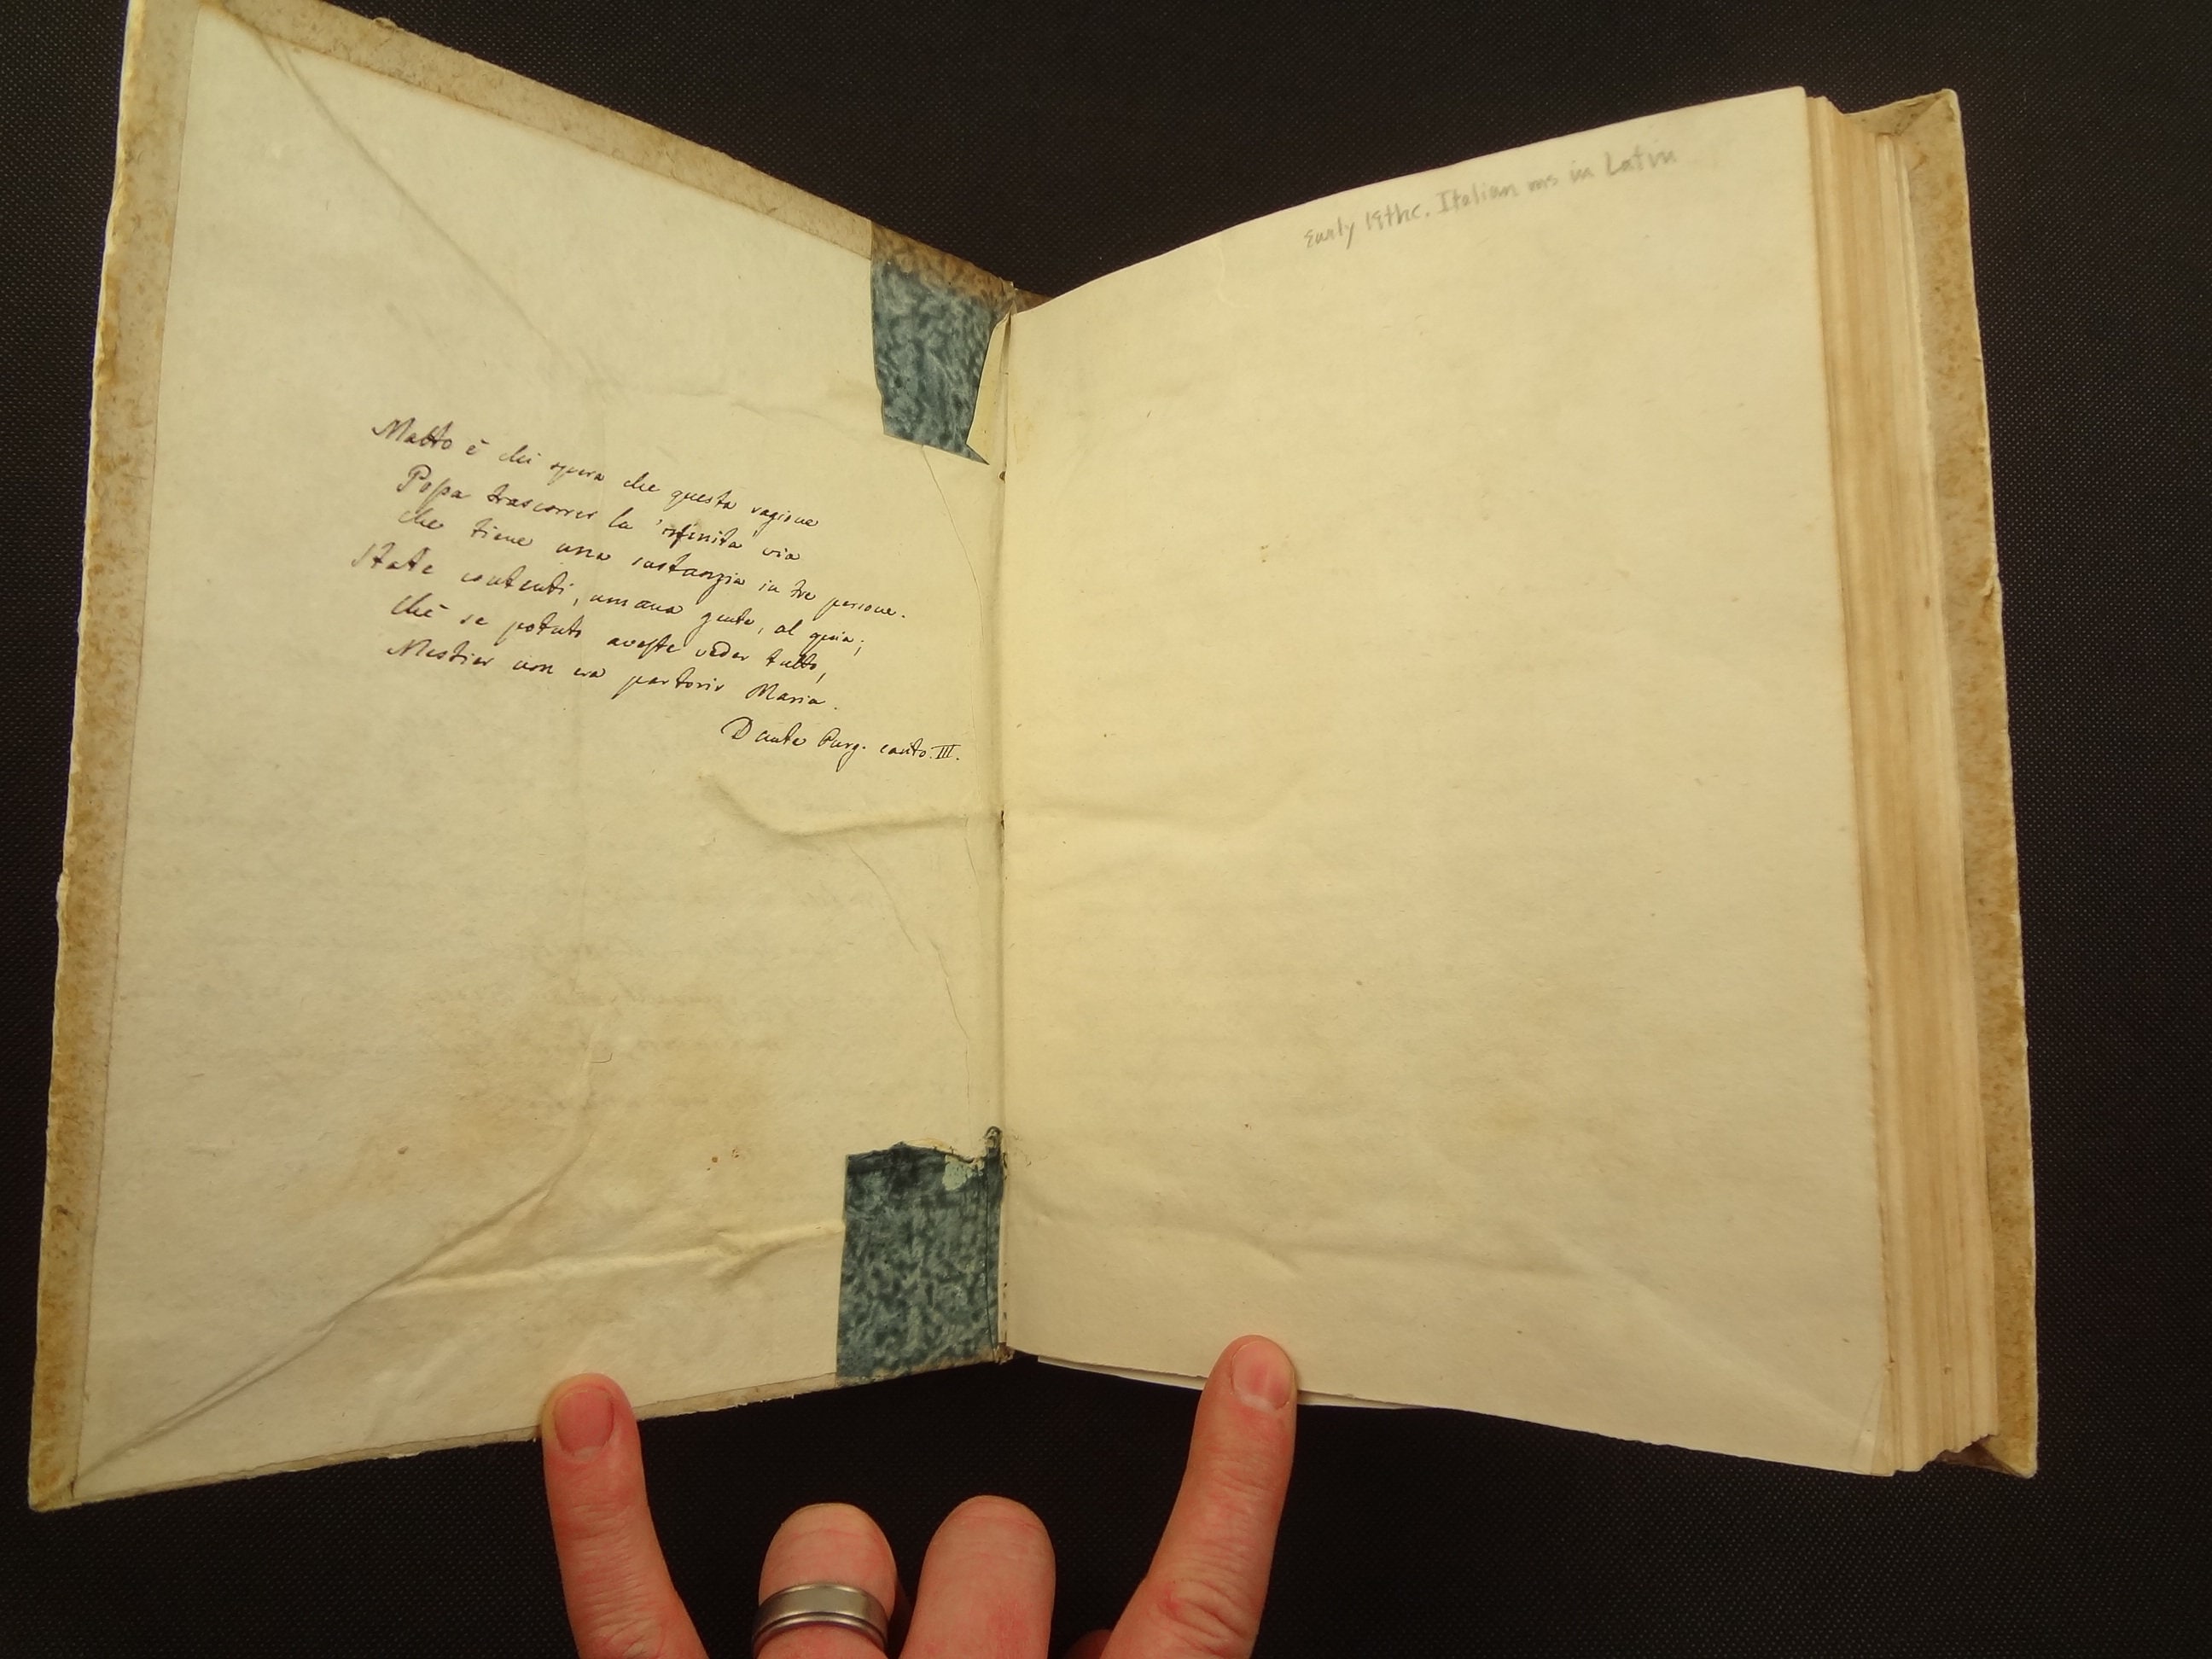 Matto è chi spera che questa ragione
Possa trascorrer la 'nfinita via
che tiene una sustanzia in tre persone.
State contenti, umana gente, al quia;
Chè se potuto aveste veder tutto,
Mestier non era partorir Maria.
Dante Purg. canto. III.
Early 19thc. Italian ms in Latin